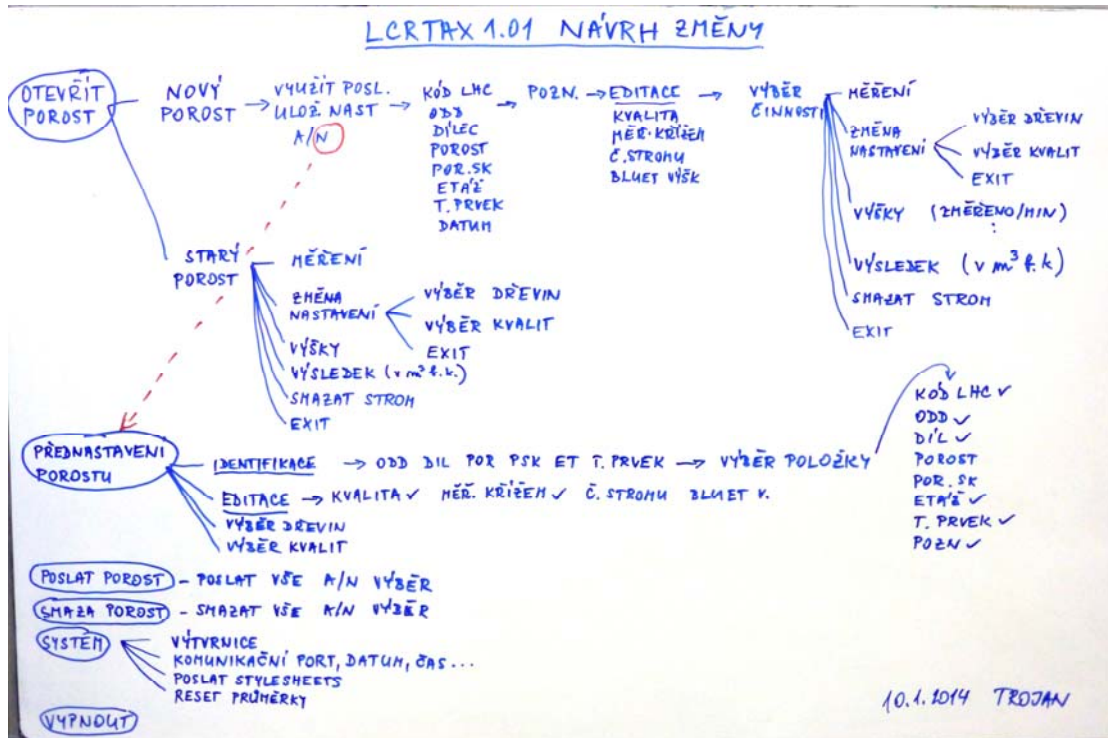 LCRTAX 1.01 NÁVRH ZMĚNY
OTEVŘÍT
POROST
NOVÝ
POROST
VYUŽÍT POSL.
ULOŽ NAST
A/N
KÓD LHC
ODD
DÍLEC
POROST
POR.SK
ETÁŽ
T. PRVEK
DATUM
POZN.
EDITACE
KVALITA
MĚR.KŘÍŽEM
Č.STROMU
BLUET VÝŠK
VÝBĚR
ČINNOSTI
MĚŘENÍ
ZMĚNA
NASTAVENÍ
VÝBĚR DŘEVIN
VÝBĚR KVALIT
EXIT
VÝŠKY (ZMĚŘENO/MIN)
:
VÝSLEDEK (v m³ b.k)
SMAZAT STROM
EXIT
STARÝ
POROST
MĚŘENÍ
ZMĚNA
NASTAVENÍ
VÝBĚR DŘEVIN
VÝBĚR KVALIT
EXIT
VÝŠKY
VÝSLEDEK (v m³ b.k.)
SMAZAT STROM
EXIT
PŘEDNASTAVENI
POROSTU
IDENTIFIKACE → ODD DIL POR PSK ET T. PRVEK → VÝBĚR POLOŽKY
KÓD LHC ✓
ODD ✓
DÍL ✓
POROST
POR. SK
ETÁŽ ✓
T. PRVEK ✓
POZN ✓
EDITACE → KVALITA ✓ MĚŘ. KŘÍŽEM ✓ Č. STROMU BLUET V.
VÝBĚR DŘEVIN
VÝBĚR KVALIT
POSLAT POROST - POSLAT VŠE A/N VÝBĚR
SMAZA POROST - SMAZAT VŠE A/N VÝBĚR
SYSTÉM
VÝTVRNICE
KOMUNIKAČNÍ PORT, DATUM, ČAS...
POSLAT STYLESHEETS
RESET PRŮMĚRKY
VYPNOUT
10.1.2014 TROJAN